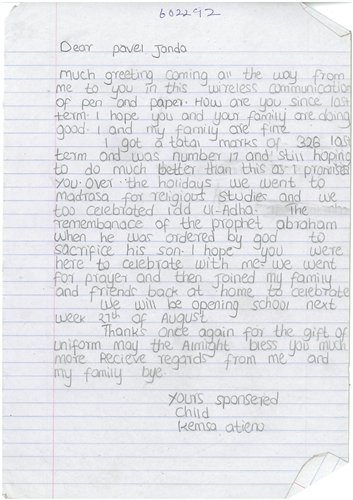 602292
Dear pavel Janda
Much greeting coming all the way from
me to you in this wireless communication
of pen and paper. How are you since last
term. I hope you and your family are doing
good. I and my family are fine
I got a total marks of 326 last
term and was number 17 and still hoping
to do much better than this as I promised
you. Over the holidays we went to
madrasa for religious studies and we
too celebrated idd Ul-Adha. The
remembanace of the prophet abraham
when he was ordered by god to
sacrifice his son. I hope you were
here to celebrate with me. we went
for prayer and then joined my family
and friends back at home to celebrate
We will be opening school next
week 27th of August
Thanks once again for the gift of
uniform may the Almight bless you much
more Recieve regards from me and
my family bye.
Yours sponsered
Child
Kemsa atieno